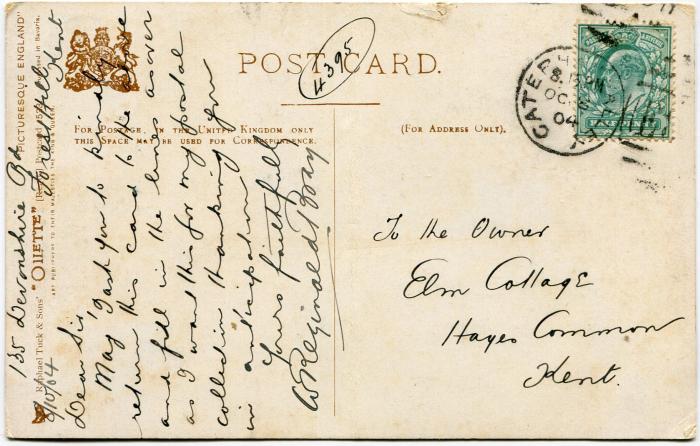 POST CARD.
4395
FOR POSTAGE, IN THE UNITED KINGDOM ONLY
THIS SPACE MAY BE USED FOR CORRESPONDENCE.
(FOR ADDRESS ONLY).
CATERHAM
OC
04
HALFPENNY
To the Owner
Elm Cottage
Hayes Common
Kent.
135 Devonshire Rd
Forest Hill
Kent
9/10/04
Dear Sir,
May I ask you to kindly
return this card to the above
and fill in the lines as over
as I want this for my postal
collection thanking you
in anticipation
Yours faithfully
W Reginald Bray
Raphael Tuck & Sons' "OILETTE" [Regd.] Postcard "PICTURESQUE ENGLAND"
ART PUBLISHERS TO THEIR MAJESTIES THE KING & QUEEN.
in Bavaria.